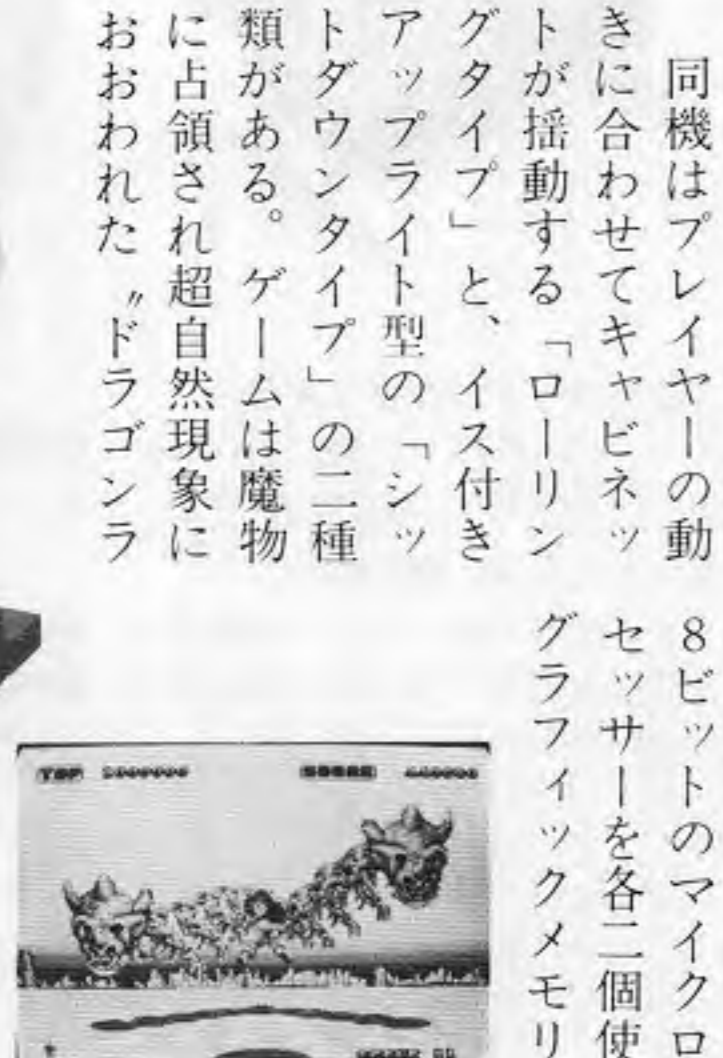 同機はプレイヤーの動
きに合わせてキャビネッ
トが揺動する「ローリン
グタイプ」と、イス付き
アップライト型の「シッ
トダウンタイプ」の二種
類がある。ゲームは魔物
に占領され超自然現象に
おおわれた〝ドラゴンラ
8ビットのマイクロ
セッサーを各二個使
グラフィックメモリ
TOP
SCORE